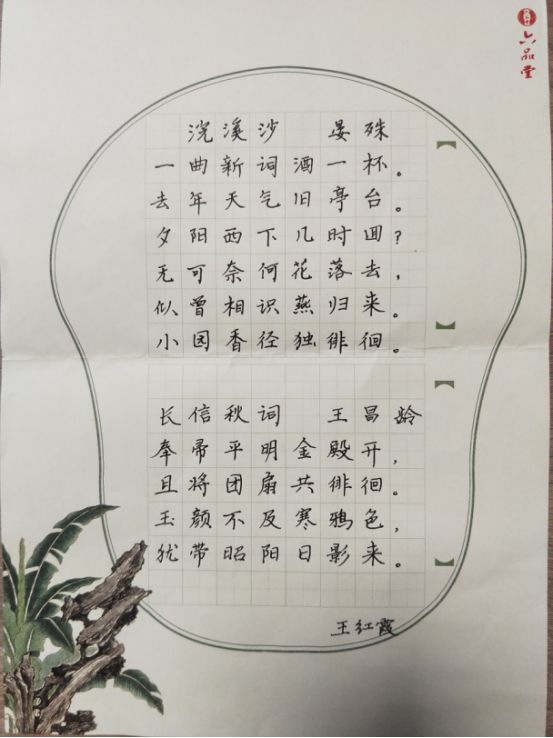 六品堂
浣溪沙 晏殊
一曲新词酒一杯。
去年天气旧亭台。
夕阳西下几时回?
无可奈何花落去,
似曾相识燕归来。
小园香径独徘徊。
长信秋词 王昌龄
奉帚平明金殿开,
且将团扇共徘徊。
玉颜不及寒鸦色,
犹带昭阳日影来。
王红霞